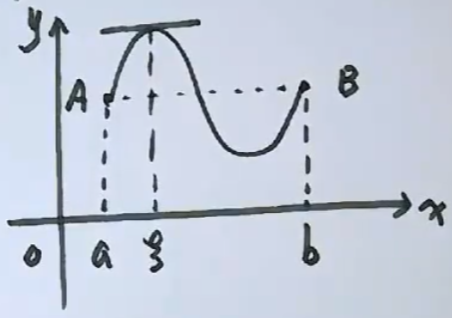 y
A B
x
o a ξ b